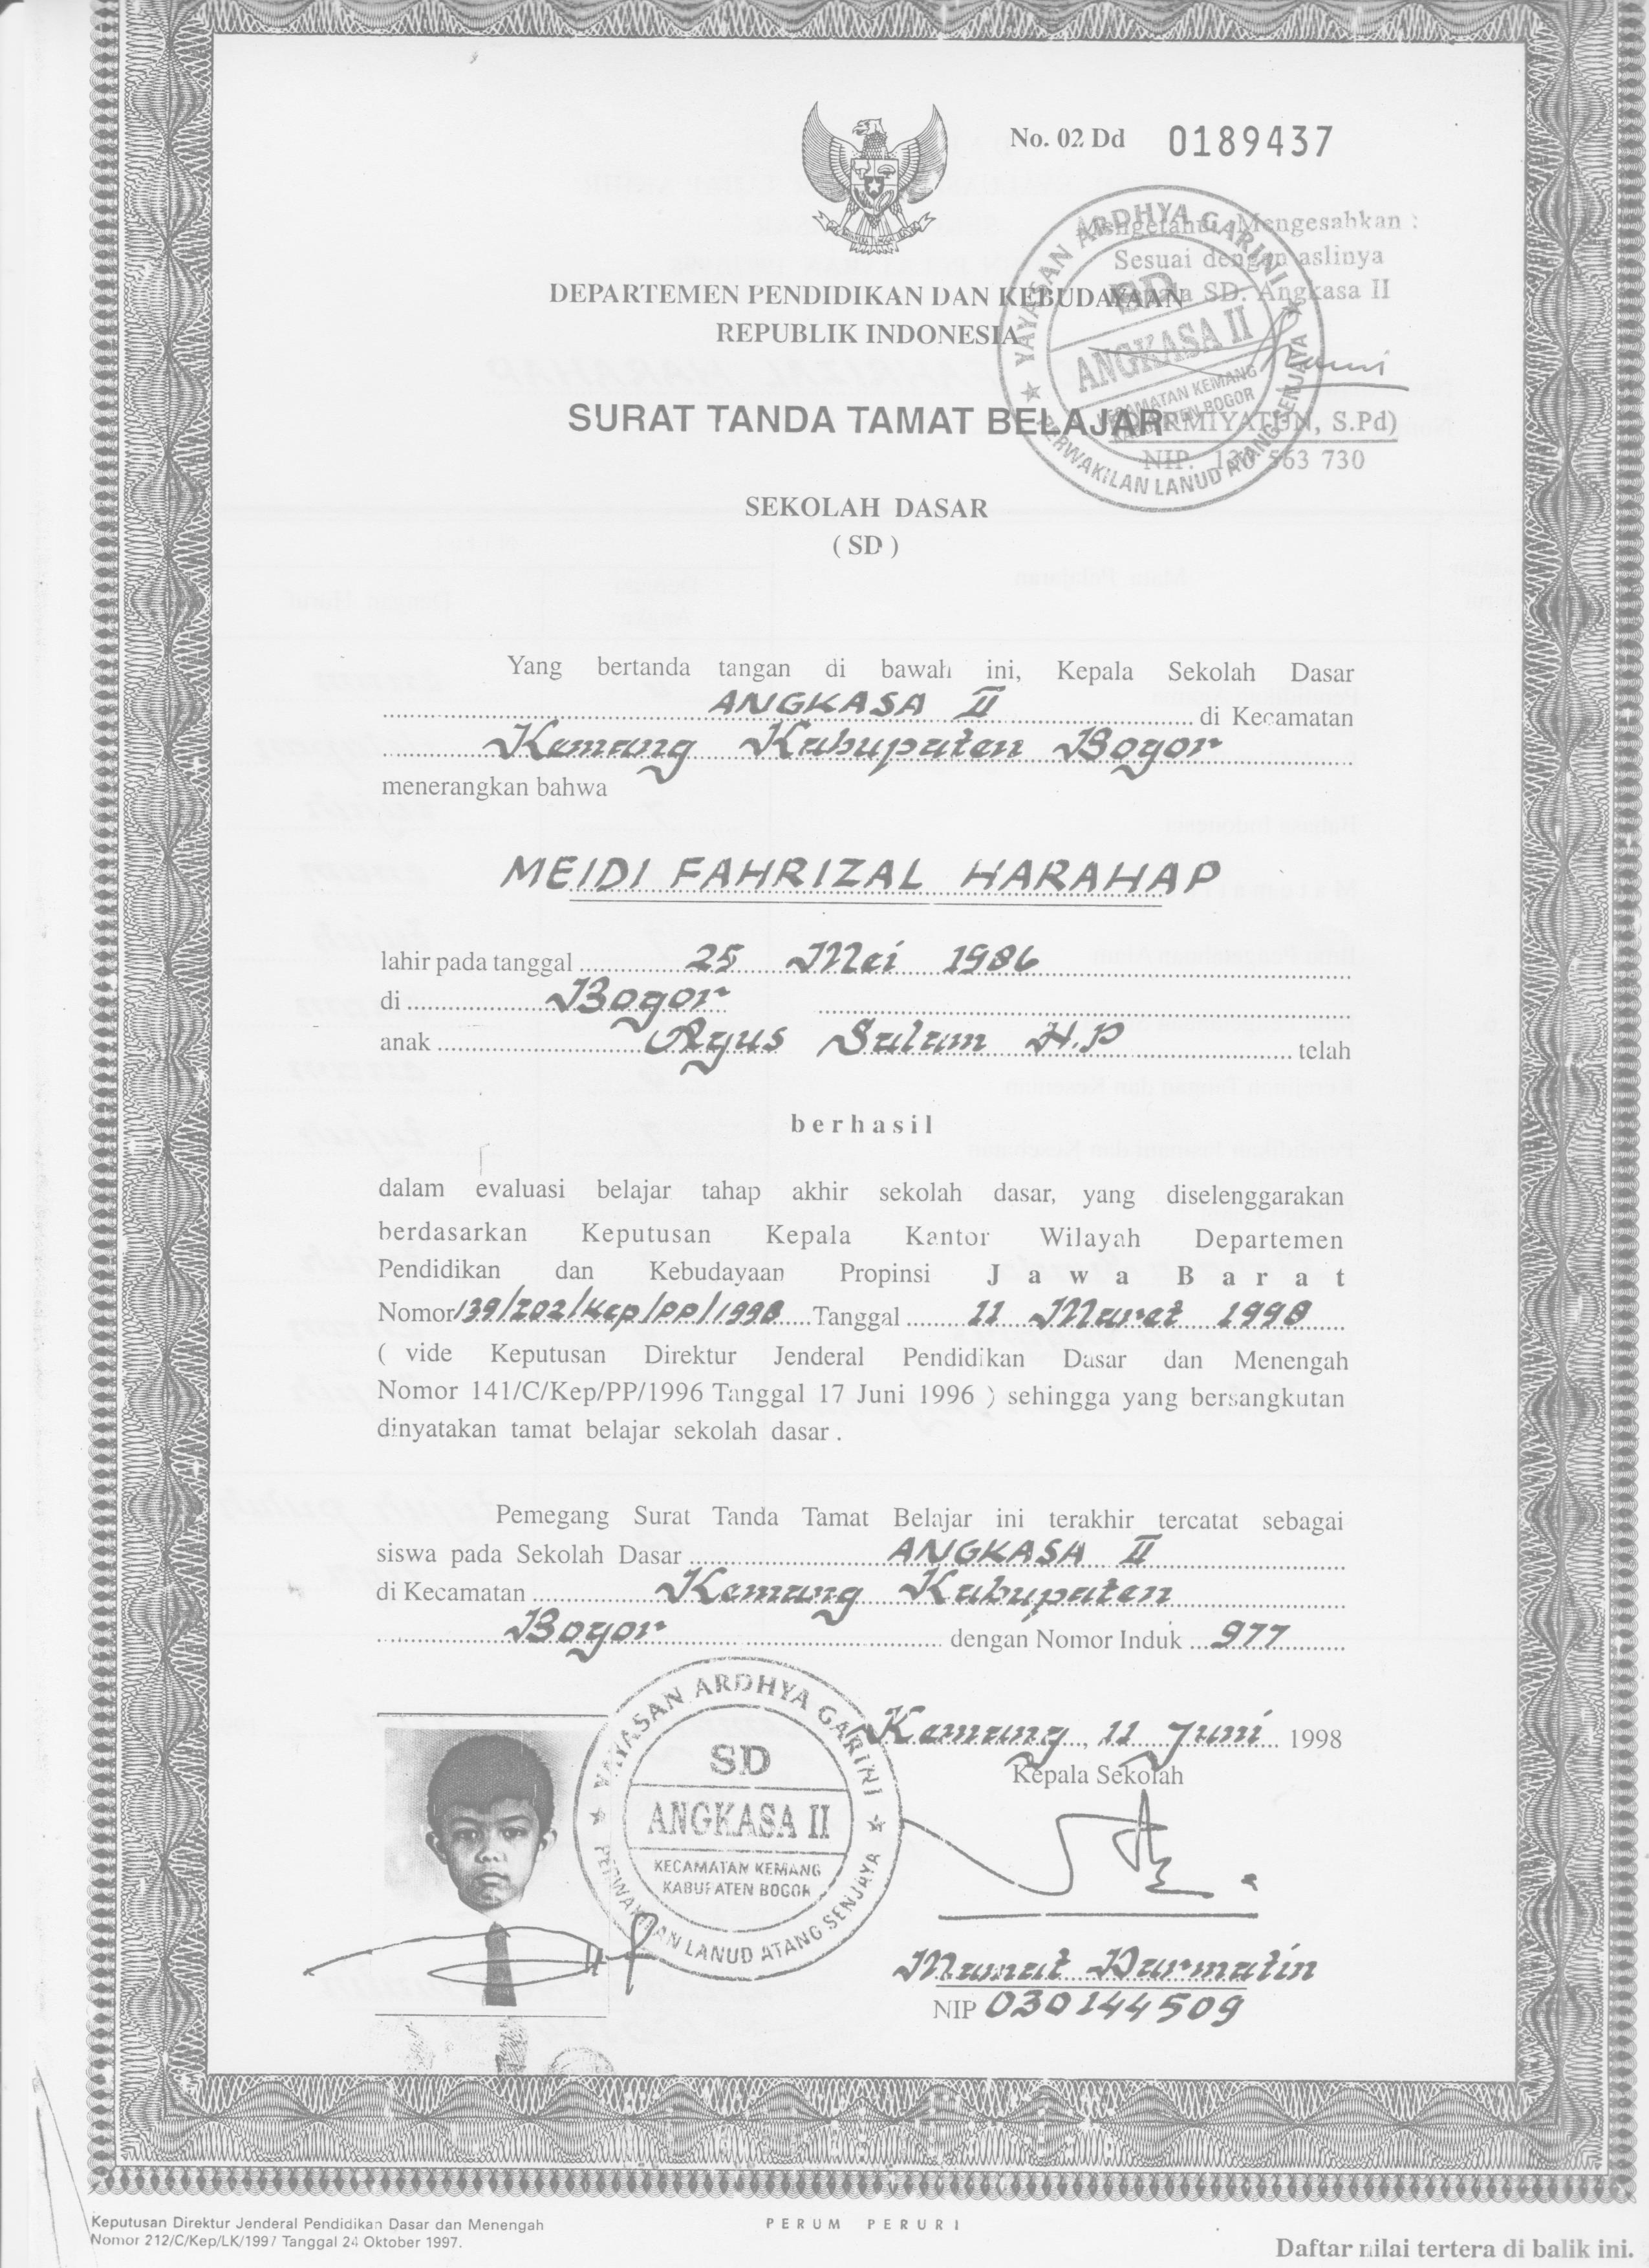 No. 02 Dd 0189437
Mengetahui Mengesahkan :
Sesuai dengan aslinya
Kepala SD. Angkasa II
DEPARTEMEN PENDIDIKAN DAN KEBUDAYAAN
REPUBLIK INDONESIA
YAYASAN ARDHYA GARINI
SD
ANGKASA II
KECAMATAN KEMANG
KABUPATEN BOGOR
PERWAKILAN LANUD ATANG SENJAYA
SURAT TANDA TAMAT BELAJAR
S.Pd)
NIP. 130 563 730
SEKOLAH DASAR
( SD )
Yang bertanda tangan di bawah ini, Kepala Sekolah Dasar
ANGKASA II di Kecamatan
Kemang Kabupaten Bogor
menerangkan bahwa
MEIDI FAHRIZAL HARAHAP
lahir pada tanggal 25 Mei 1986
di Bogor
anak Agus Salam H.P telah
berhasil
dalam evaluasi belajar tahap akhir sekolah dasar, yang diselenggarakan
berdasarkan Keputusan Kepala Kantor Wilayah Departemen
Pendidikan dan Kebudayaan Propinsi Jawa Barat
Nomor 139/202/Kep/PP/1998 Tanggal 11 Maret 1998
( vide Keputusan Direktur Jenderal Pendidikan Dasar dan Menengah
Nomor 141/C/Kep/PP/1996 Tanggal 17 Juni 1996 ) sehingga yang bersangkutan
dinyatakan tamat belajar sekolah dasar .
Pemegang Surat Tanda Tamat Belajar ini terakhir tercatat sebagai
siswa pada Sekolah Dasar ANGKASA II
di Kecamatan Kemang Kabupaten
Bogor dengan Nomor Induk 977
YAYASAN ARDHYA GARINI
SD
ANGKASA II
KECAMATAN KEMANG
KABUPATEN BOGOR
PERWAKILAN LANUD ATANG SENJAYA
Kemang, 11 Juni 1998
Kepala Sekolah
Mamat Darmatin
NIP 030144509
Keputusan Direktur Jenderal Pendidikan Dasar dan Menengah
Nomor 212/C/Kep/LK/1997 Tanggal 24 Oktober 1997.
PERUM PERURI
Daftar nilai tertera di balik ini.